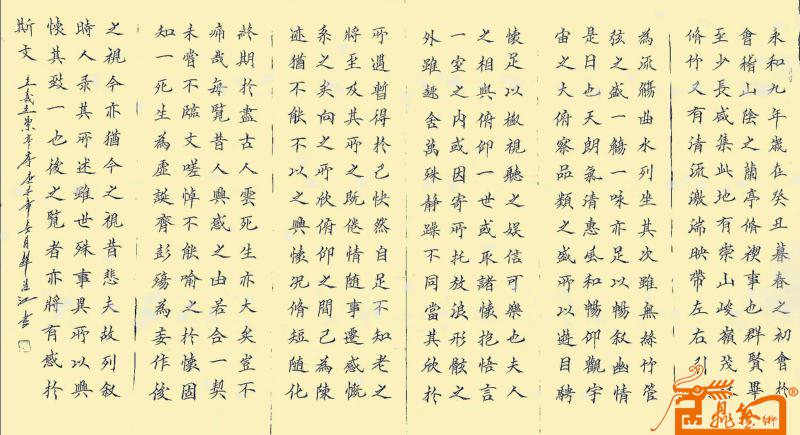 永和九年歲在癸丑暮春之初會於
會稽山陰之蘭亭脩禊事也群賢畢
至少長咸集此地有崇山峻嶺茂
脩竹又有清流激湍映帶左右引
為流觴曲水列坐其次雖無絲竹管
弦之盛一觴一咏亦足以暢敘幽情
是日也天朗氣清惠風和暢仰觀宇
宙之大俯察品類之盛所以遊目騁
懷足以極視聽之娛信可樂也夫人
之相與俯仰一世或取諸懷抱悟言
一室之內或因寄所托放浪形骸之
外雖趣舍萬殊靜躁不同當其欣於
所遇暫得於己快然自足不知老之
將至及其所之既倦情隨事遷感慨
系之矣向之所欣俯仰之間已為陳
迹猶不能不以之興懷況脩短隨化
終期於盡古人雲死生亦大矣豈不
痛哉每覽昔人興感之由若合一契
未嘗不臨文嗟悼不能喻之於懷固
知一死生為虛誕齊彭殤為妄作後
之視今亦猶今之視昔悲夫故列敘
時人录其所述雖世殊事異所以興
懷其致一也後之覽者亦將有感於
斯文